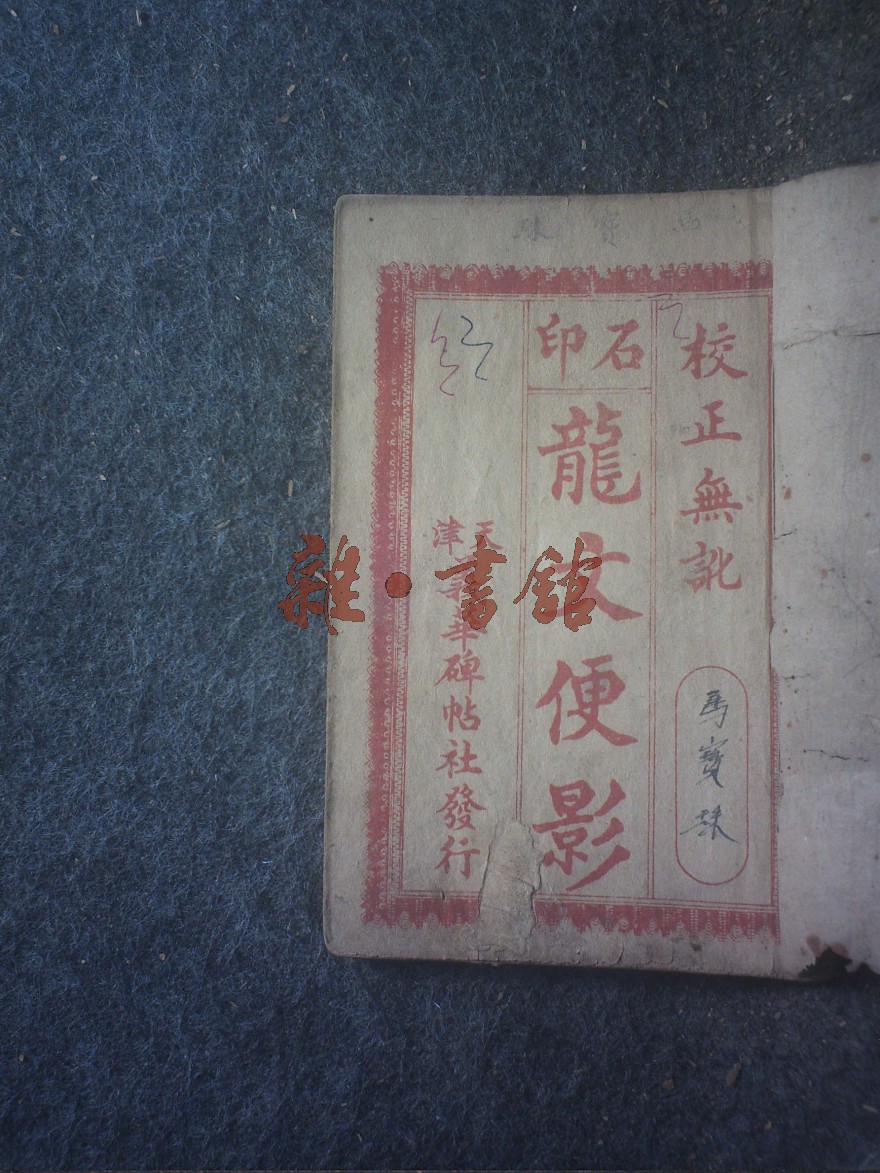 馬寶珠
校正無訛
馬寶珠
石印
龍文便影
天津
華碑帖社發行
雜·書館